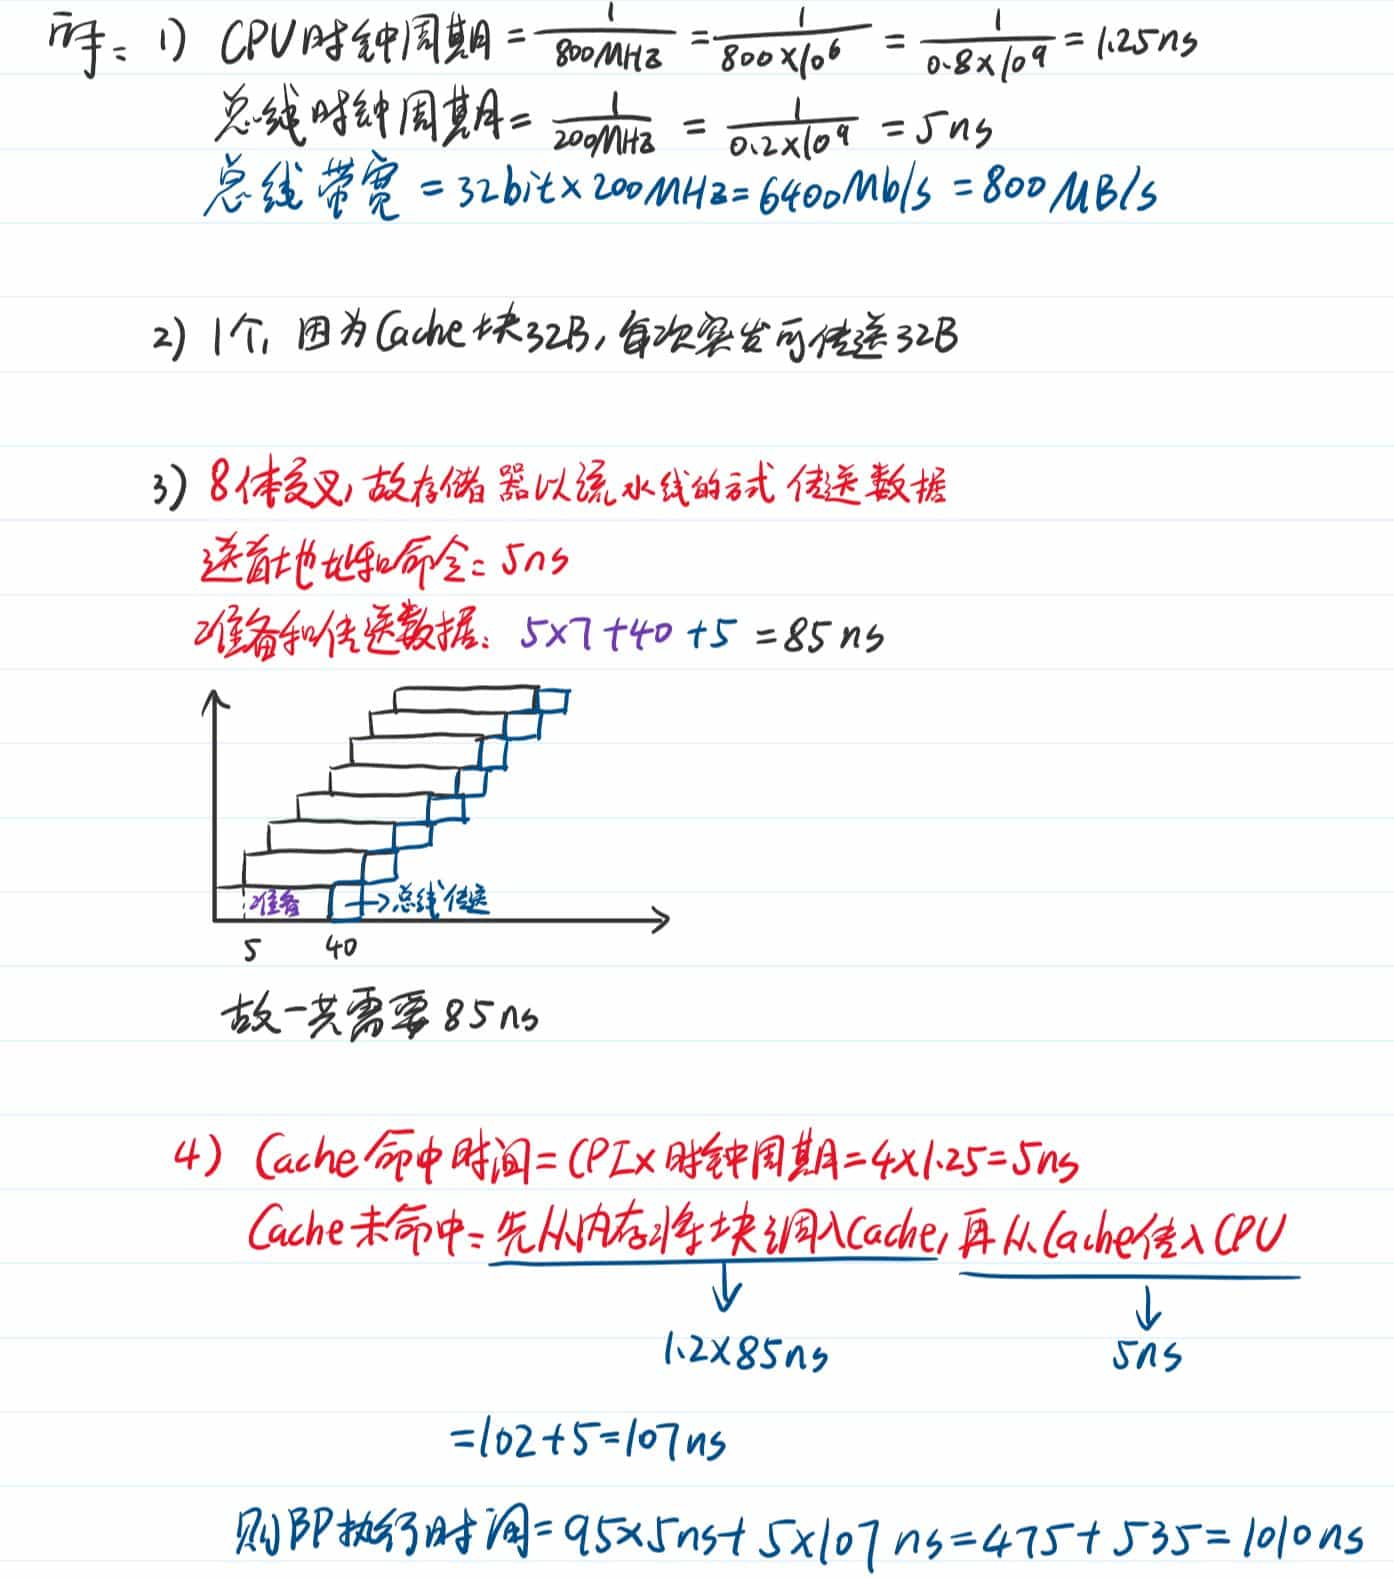 解: 1) CPU时钟周期 = 1/800MHz = 1/800×10⁶ = 1/0.8×10⁹ = 1.25ns
总线时钟周期 = 1/200MHz = 1/0.2×10⁹ = 5ns
总线带宽 = 32bit×200MHz = 6400Mb/s = 800MB/s
2) 1个, 因为Cache块32B, 每次突发可传送32B
3) 8体交叉, 故存储器以流水线的方式传送数据
送首地址和命令: 5ns
准备和传送数据: 5×7+40+5 = 85ns
准备 → 总线传送
5 40
故一共需要85ns
4) Cache命中时间 = CPI×时钟周期 = 4×1.25 = 5ns
Cache未命中: 先从内存将块调入Cache, 再从Cache传入CPU
↓ ↓
1.2×85ns 5ns
=102+5=107ns
则BP执行时间 = 95×5ns + 5×107ns = 475+535 = 1010ns